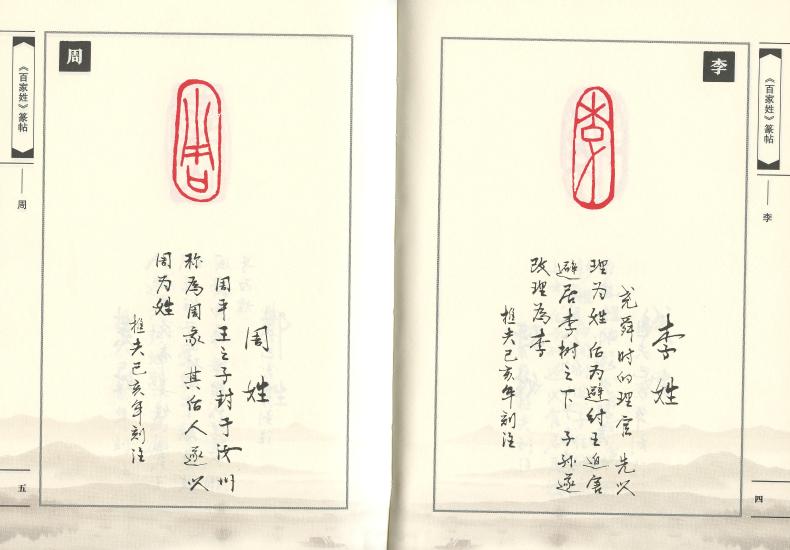 《百家姓》篆帖
李
四
李
李
李姓
尧舜时的理官 先以
理为姓 后为避纣王迫害
避居李树之下 子孙遂
改理為李
樵夫己亥年刻注
周
周
周姓
周平王之子封于汝州
称為周家 其后人遂以
周为姓
樵夫己亥年刻注
《百家姓》篆帖
周
五